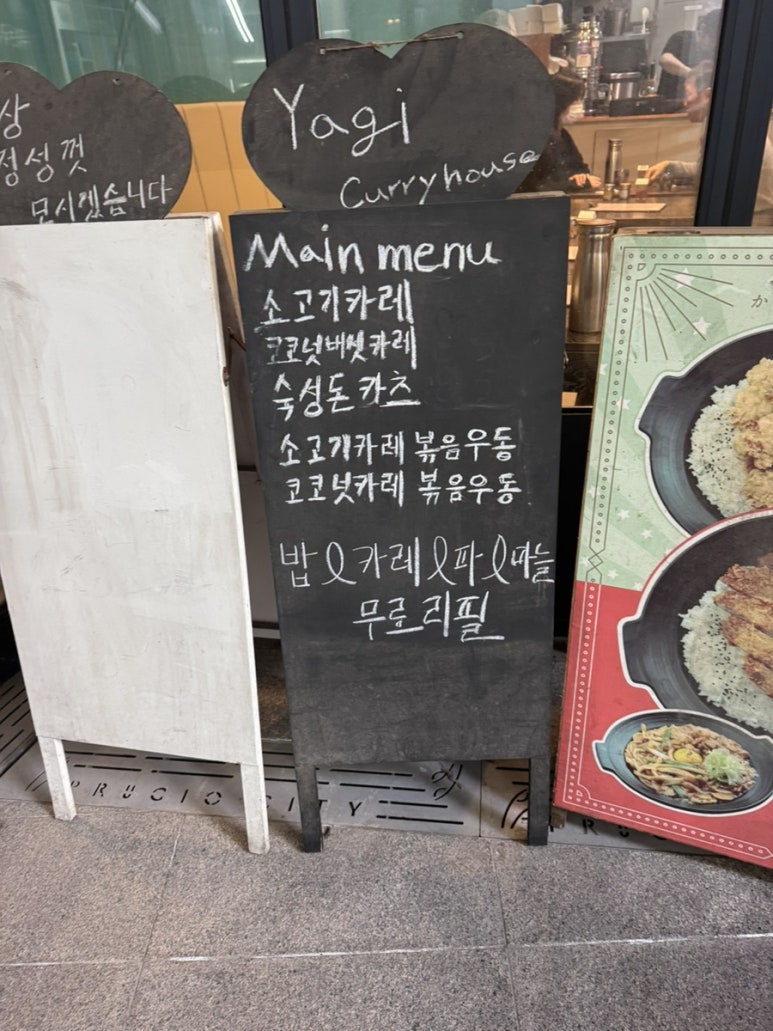 상
정성껏
모시겠습니다
Yagi
Curryhouse
Main menu
소고기카레
코코넛버섯카레
숙성돈카츠
소고기카레 볶음우동
코코넛카레 볶음우동
밥 & 카레 & 파 & 마늘
무료리필
か
PRUGIO CITY